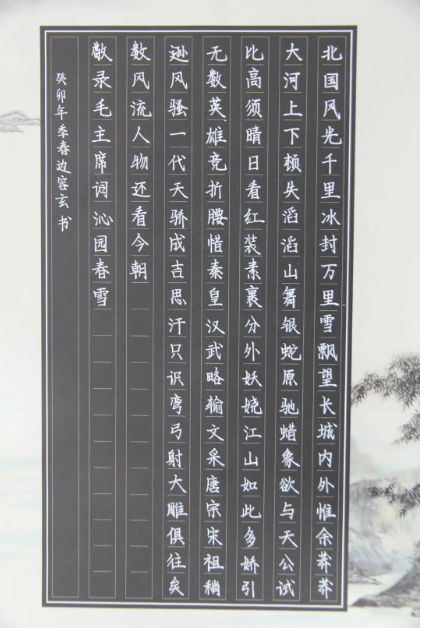 北国风光千里冰封万里雪飘望长城内外惟余莽莽
大河上下顿失滔滔山舞银蛇原驰蜡象欲与天公试
比高须晴日看红装素裹分外妖娆江山如此多娇引
无数英雄竞折腰惜秦皇汉武略输文采唐宗宋祖稍
逊风骚一代天骄成吉思汗只识弯弓射大雕俱往矣
数风流人物还看今朝
敬录毛主席词沁园春雪
癸卯年季春边容玄书